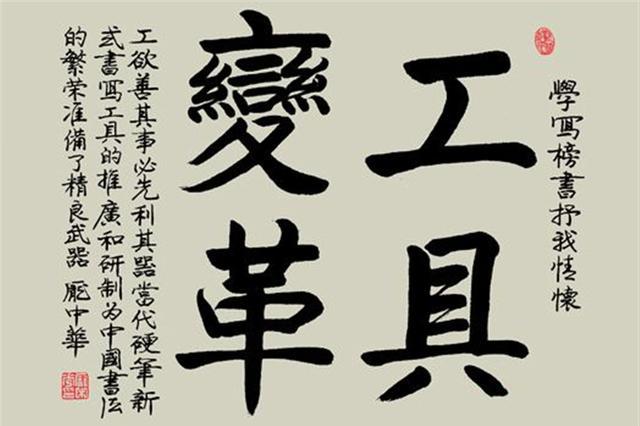 學寫榜書抒我情懷
工具
變革
工欲善其事必先利其器當代硬筆新
式書寫工具的推廣和研制为中國書法
的繁荣准備了精良武器 龐中華